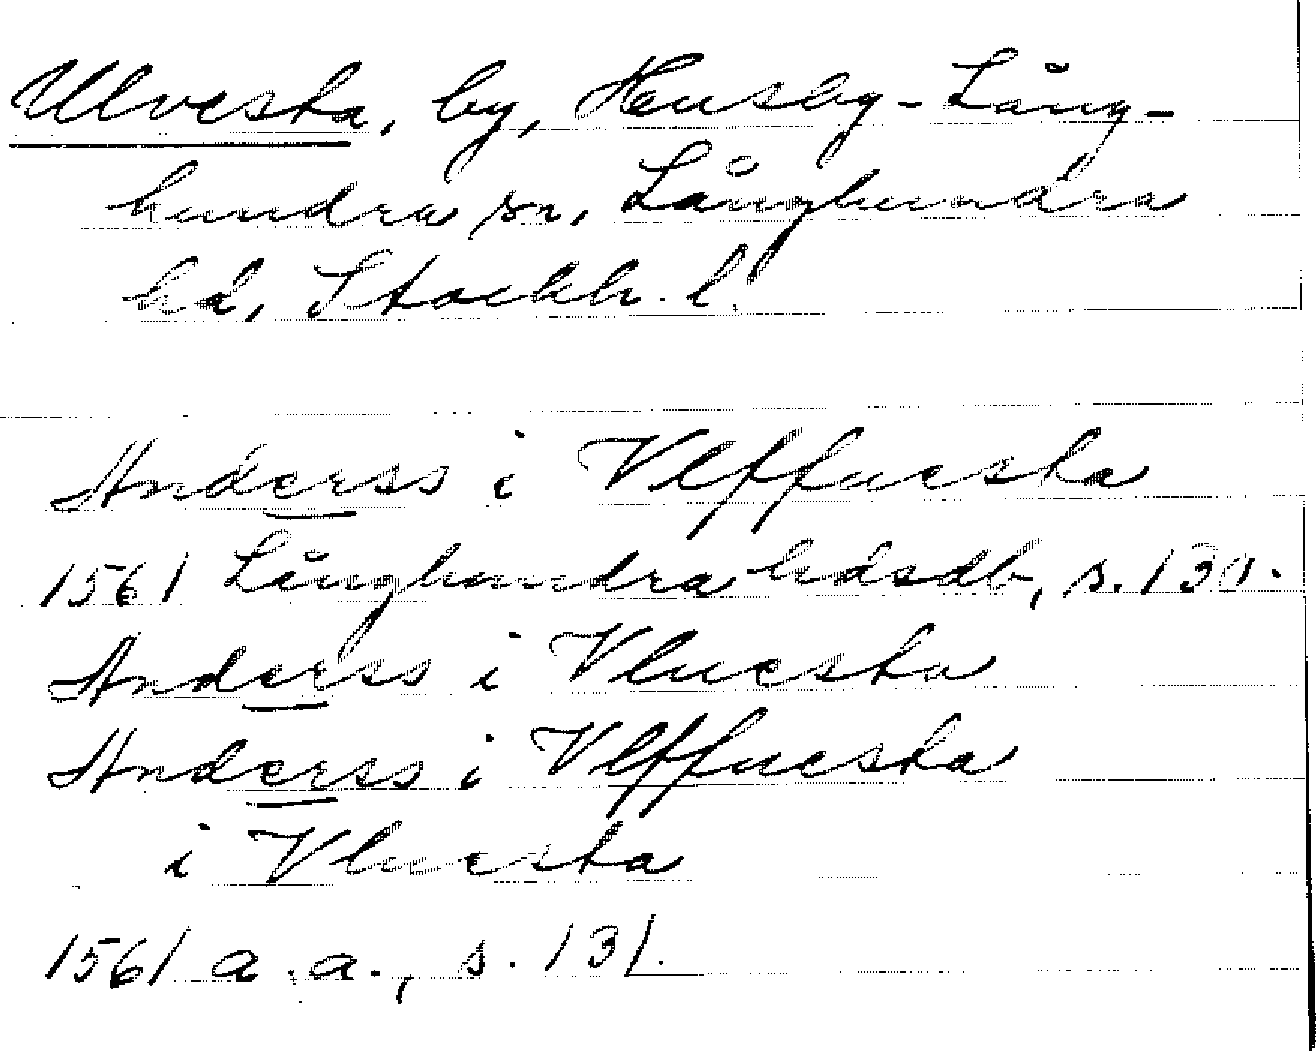 Ulvesta, by, Husby-Lång-
hundra sn, Långhundra
hd, Stockh. l.
Anderss i Vlffuesta
1561 Långhundra hdsdb, s. 130.
Anderss i Vluesta
Anderss i Vlffuesta
i Vluesta
1561 a.a., s. 131.